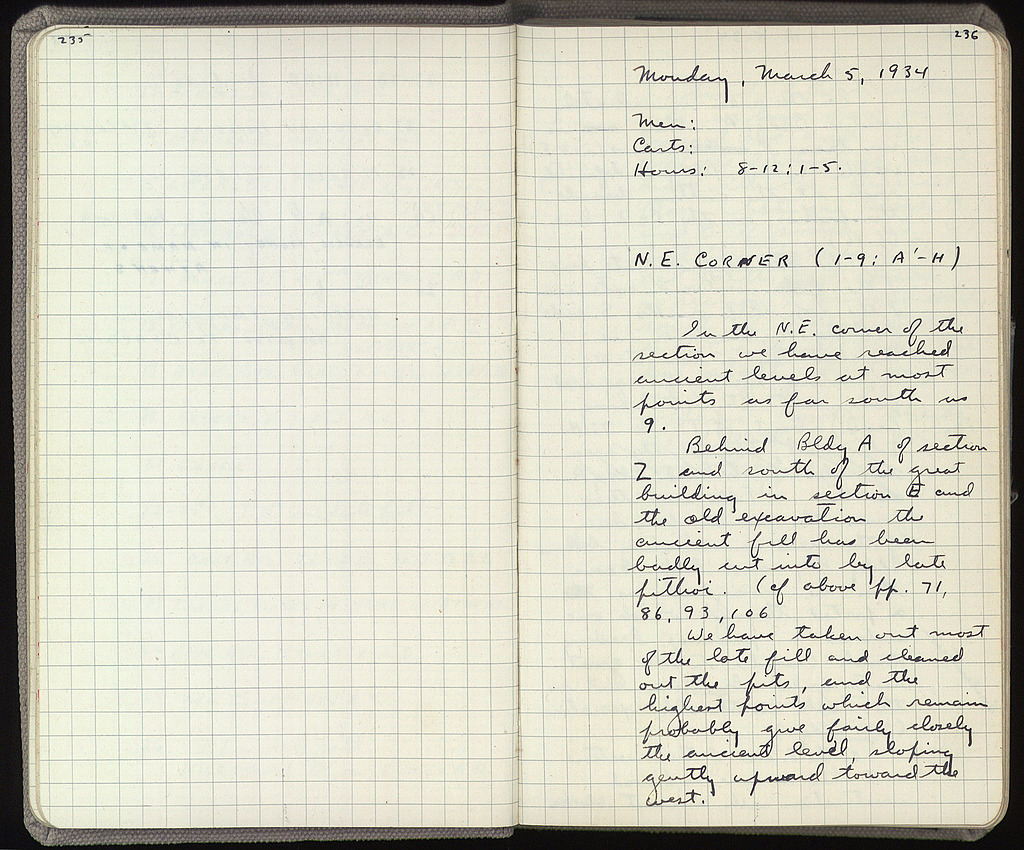 235
236
Monday, March 5, 1934
Men:
Carts:
Hours: 8-12; 1-5.
N.E. CORNER (1-9; A'-H)
In the N.E. corner of the
section we have reached
ancient levels at most
points as far south as
9.
Behind Bldg A of section
Z and south of the great
building in section E and
the old excavation the
ancient fill has been
badly cut into by late
pithoi. (cf above pp. 71,
86, 93, 106
We have taken out most
of the late fill and cleaned
out the pits, and the
highest points which remain
probably give fairly closely
the ancient level, sloping
gently upward toward the
west.